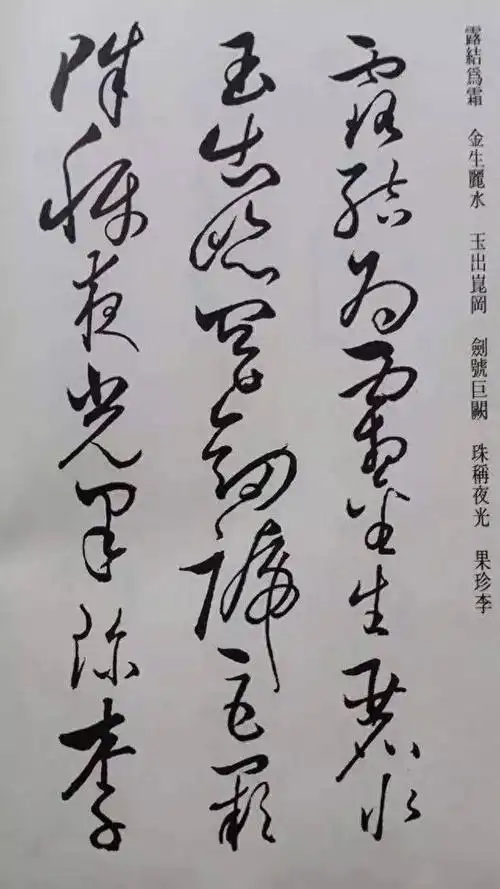 露結爲霜　金生麗水　玉出崑岡　劍號巨闕　珠稱夜光　果珍李
露結为霜金生麗水
玉出崑岡劍號巨闕
珠稱夜光果珍李